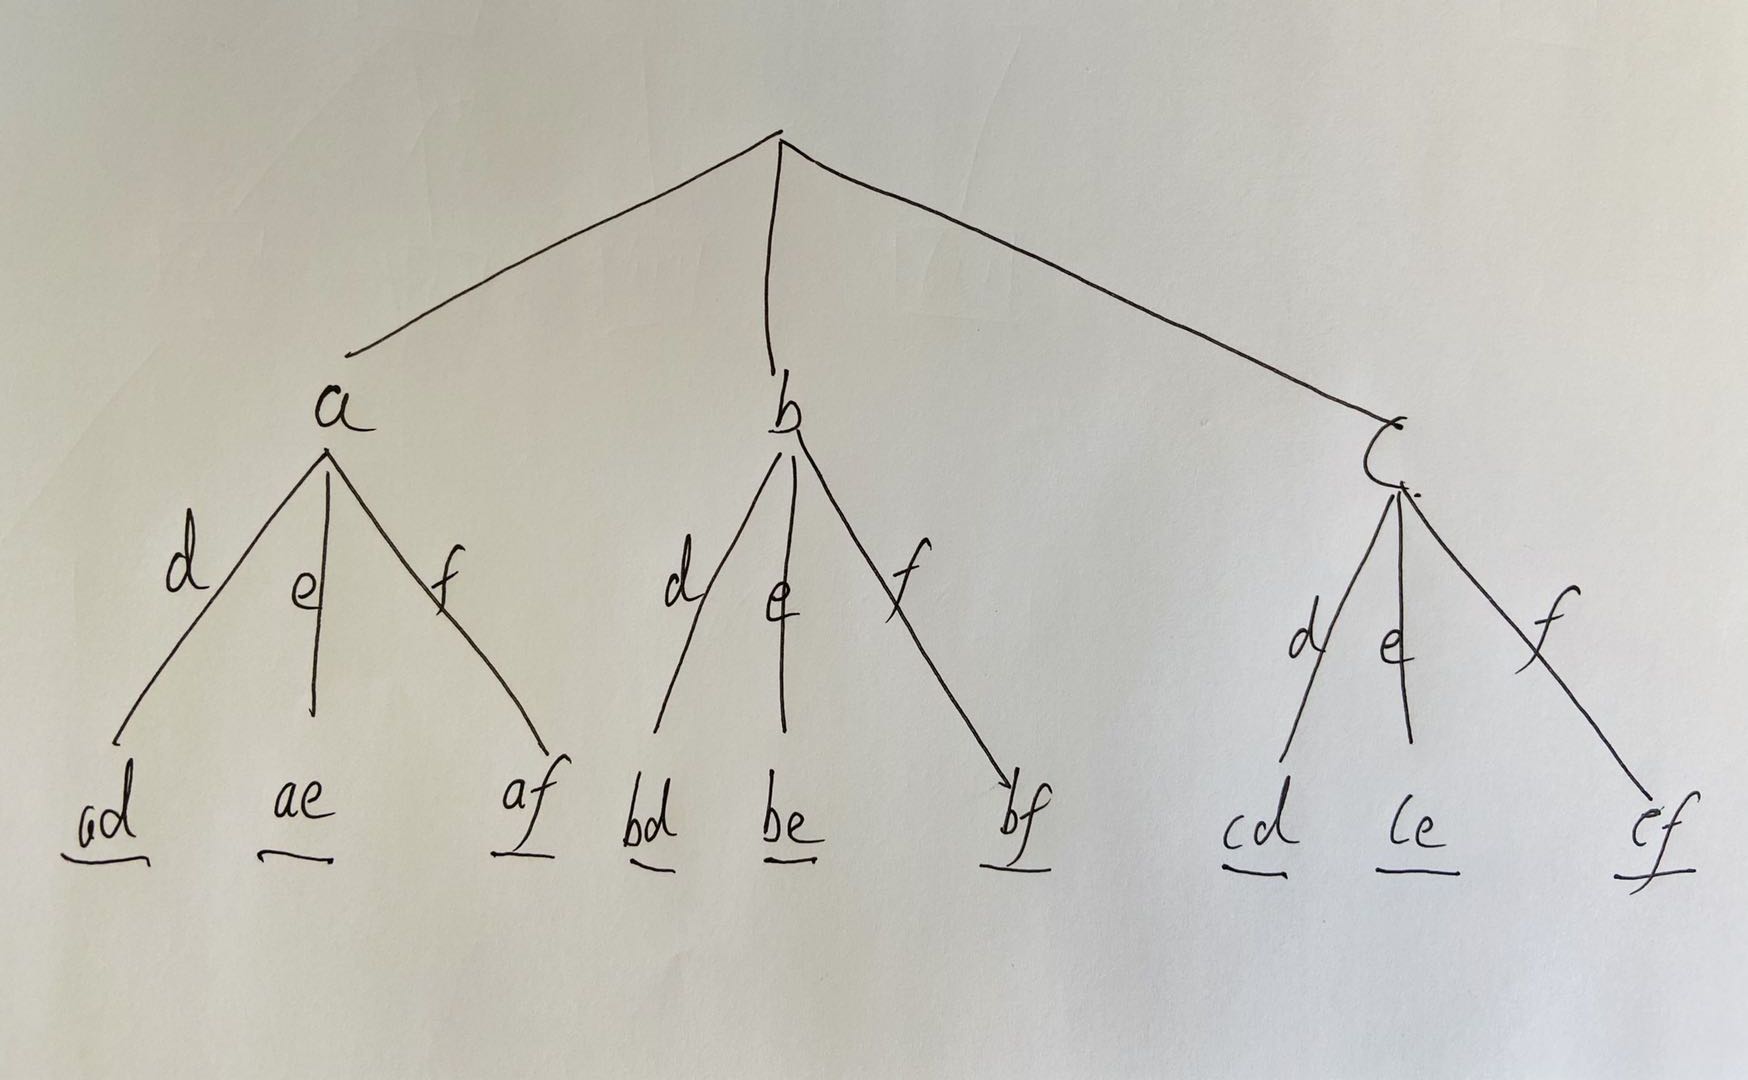 a b c
d e f d e f d e f
ad ae af bd be bf cd ce cf